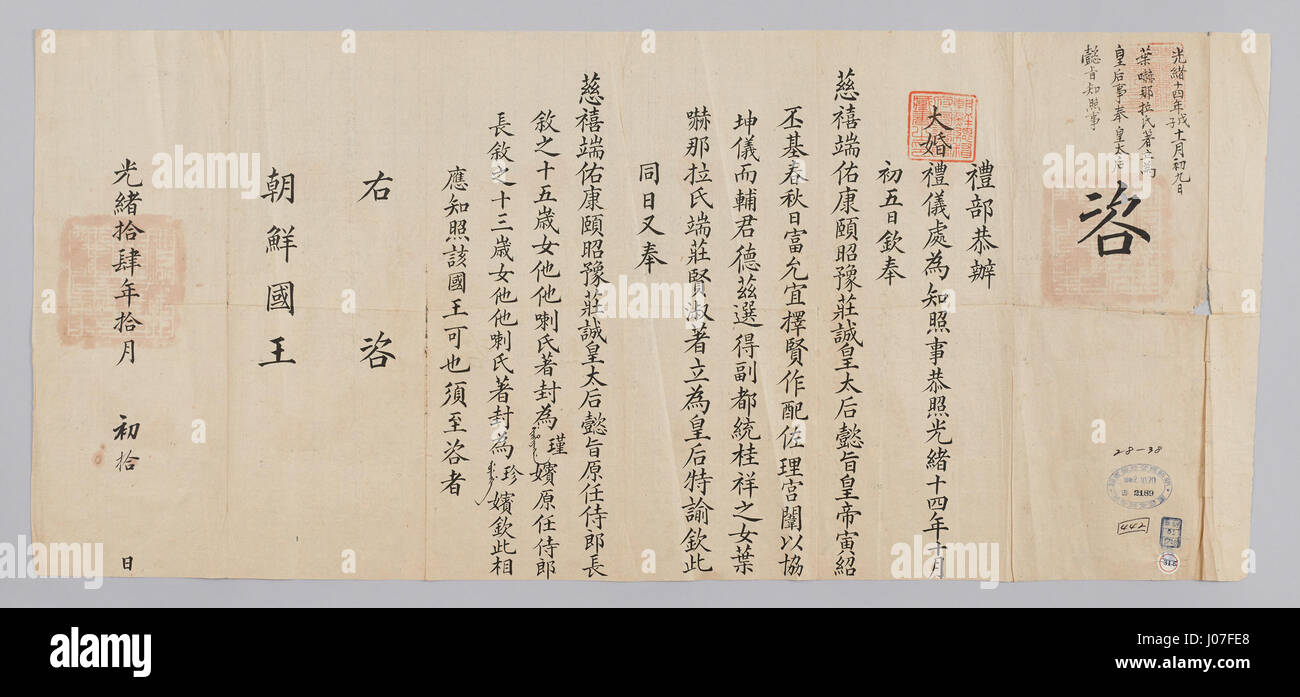 光緒十四年戊子十一月初九日
葉嚇那拉氏著為
皇后事奉皇太后
懿旨知照事
咨
禮部恭辦
大婚禮儀處為知照事恭照光緒十四年十月
初五日欽奉
慈禧端佑康頤昭豫莊誠皇太后懿旨皇帝寅紹
丕基春秋日富允宜擇賢作配佐理宮闈以協
坤儀而輔君德茲選得副都統桂祥之女葉
嚇那拉氏端莊賢淑著立為皇后特諭欽此
同日又奉
慈禧端佑康頤昭豫莊誠皇太后懿旨原任侍郎長
敘之十五歲女他他喇氏著封為瑾嬪原任侍郎
長敘之十三歲女他他喇氏著封為珍嬪欽此相
應知照該國王可也須至咨者
右咨
朝鮮國王
光緒拾肆年拾月初拾日
28-38
2189
442
alamy
Image ID: J07FE8
www.alamy.com